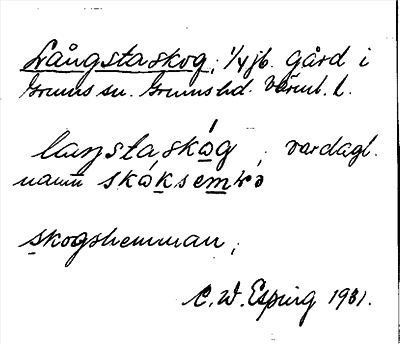 Långstaskog, 1/4 jb. gård i
Grums sn. Grums hd. Värml. l.
laŋstaskóg, vardagl.
namn skóksemrə
skogshemman,
C. W. Esping 1931.